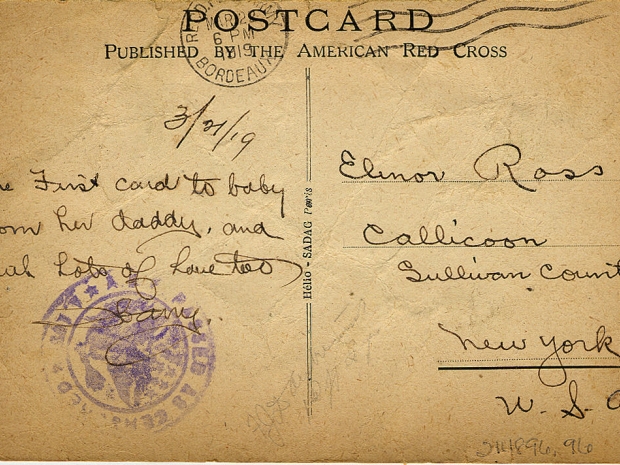 POSTCARD
PUBLISHED BY THE AMERICAN RED CROSS
6 PM
1919
BORDEAUX
3/21/19
First card to baby
her daddy, and
Lots of love too
Hélio - SADAG Paris
Elinor Ross
Callicoon
Sullivan Count
New York
U. S. A
244896.96